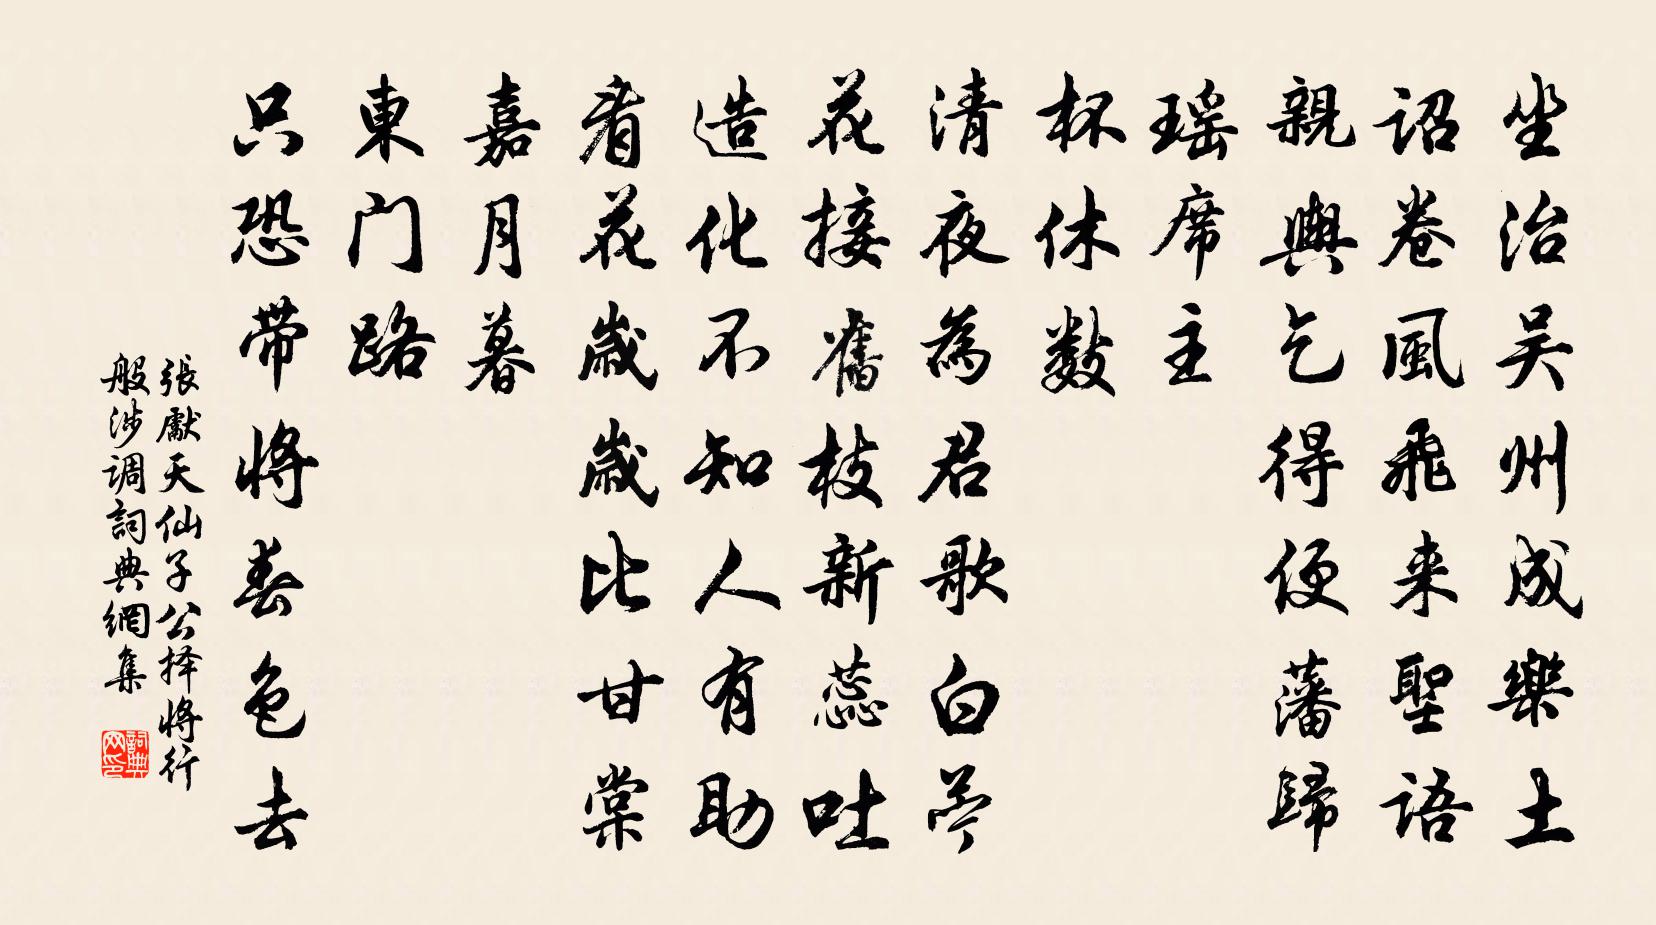 坐治吴州成樂土
詔卷風飛来聖語
親輿乞得便藩歸
瑶席主
杯休数
清夜為君歌白苎
花接舊枝新蕊吐
造化不知人有助
看花歲歲比甘棠
嘉月暮
東门路
只恐带将春色去
張獻天仙子公择将行
般涉调詞典網集
詞典网印